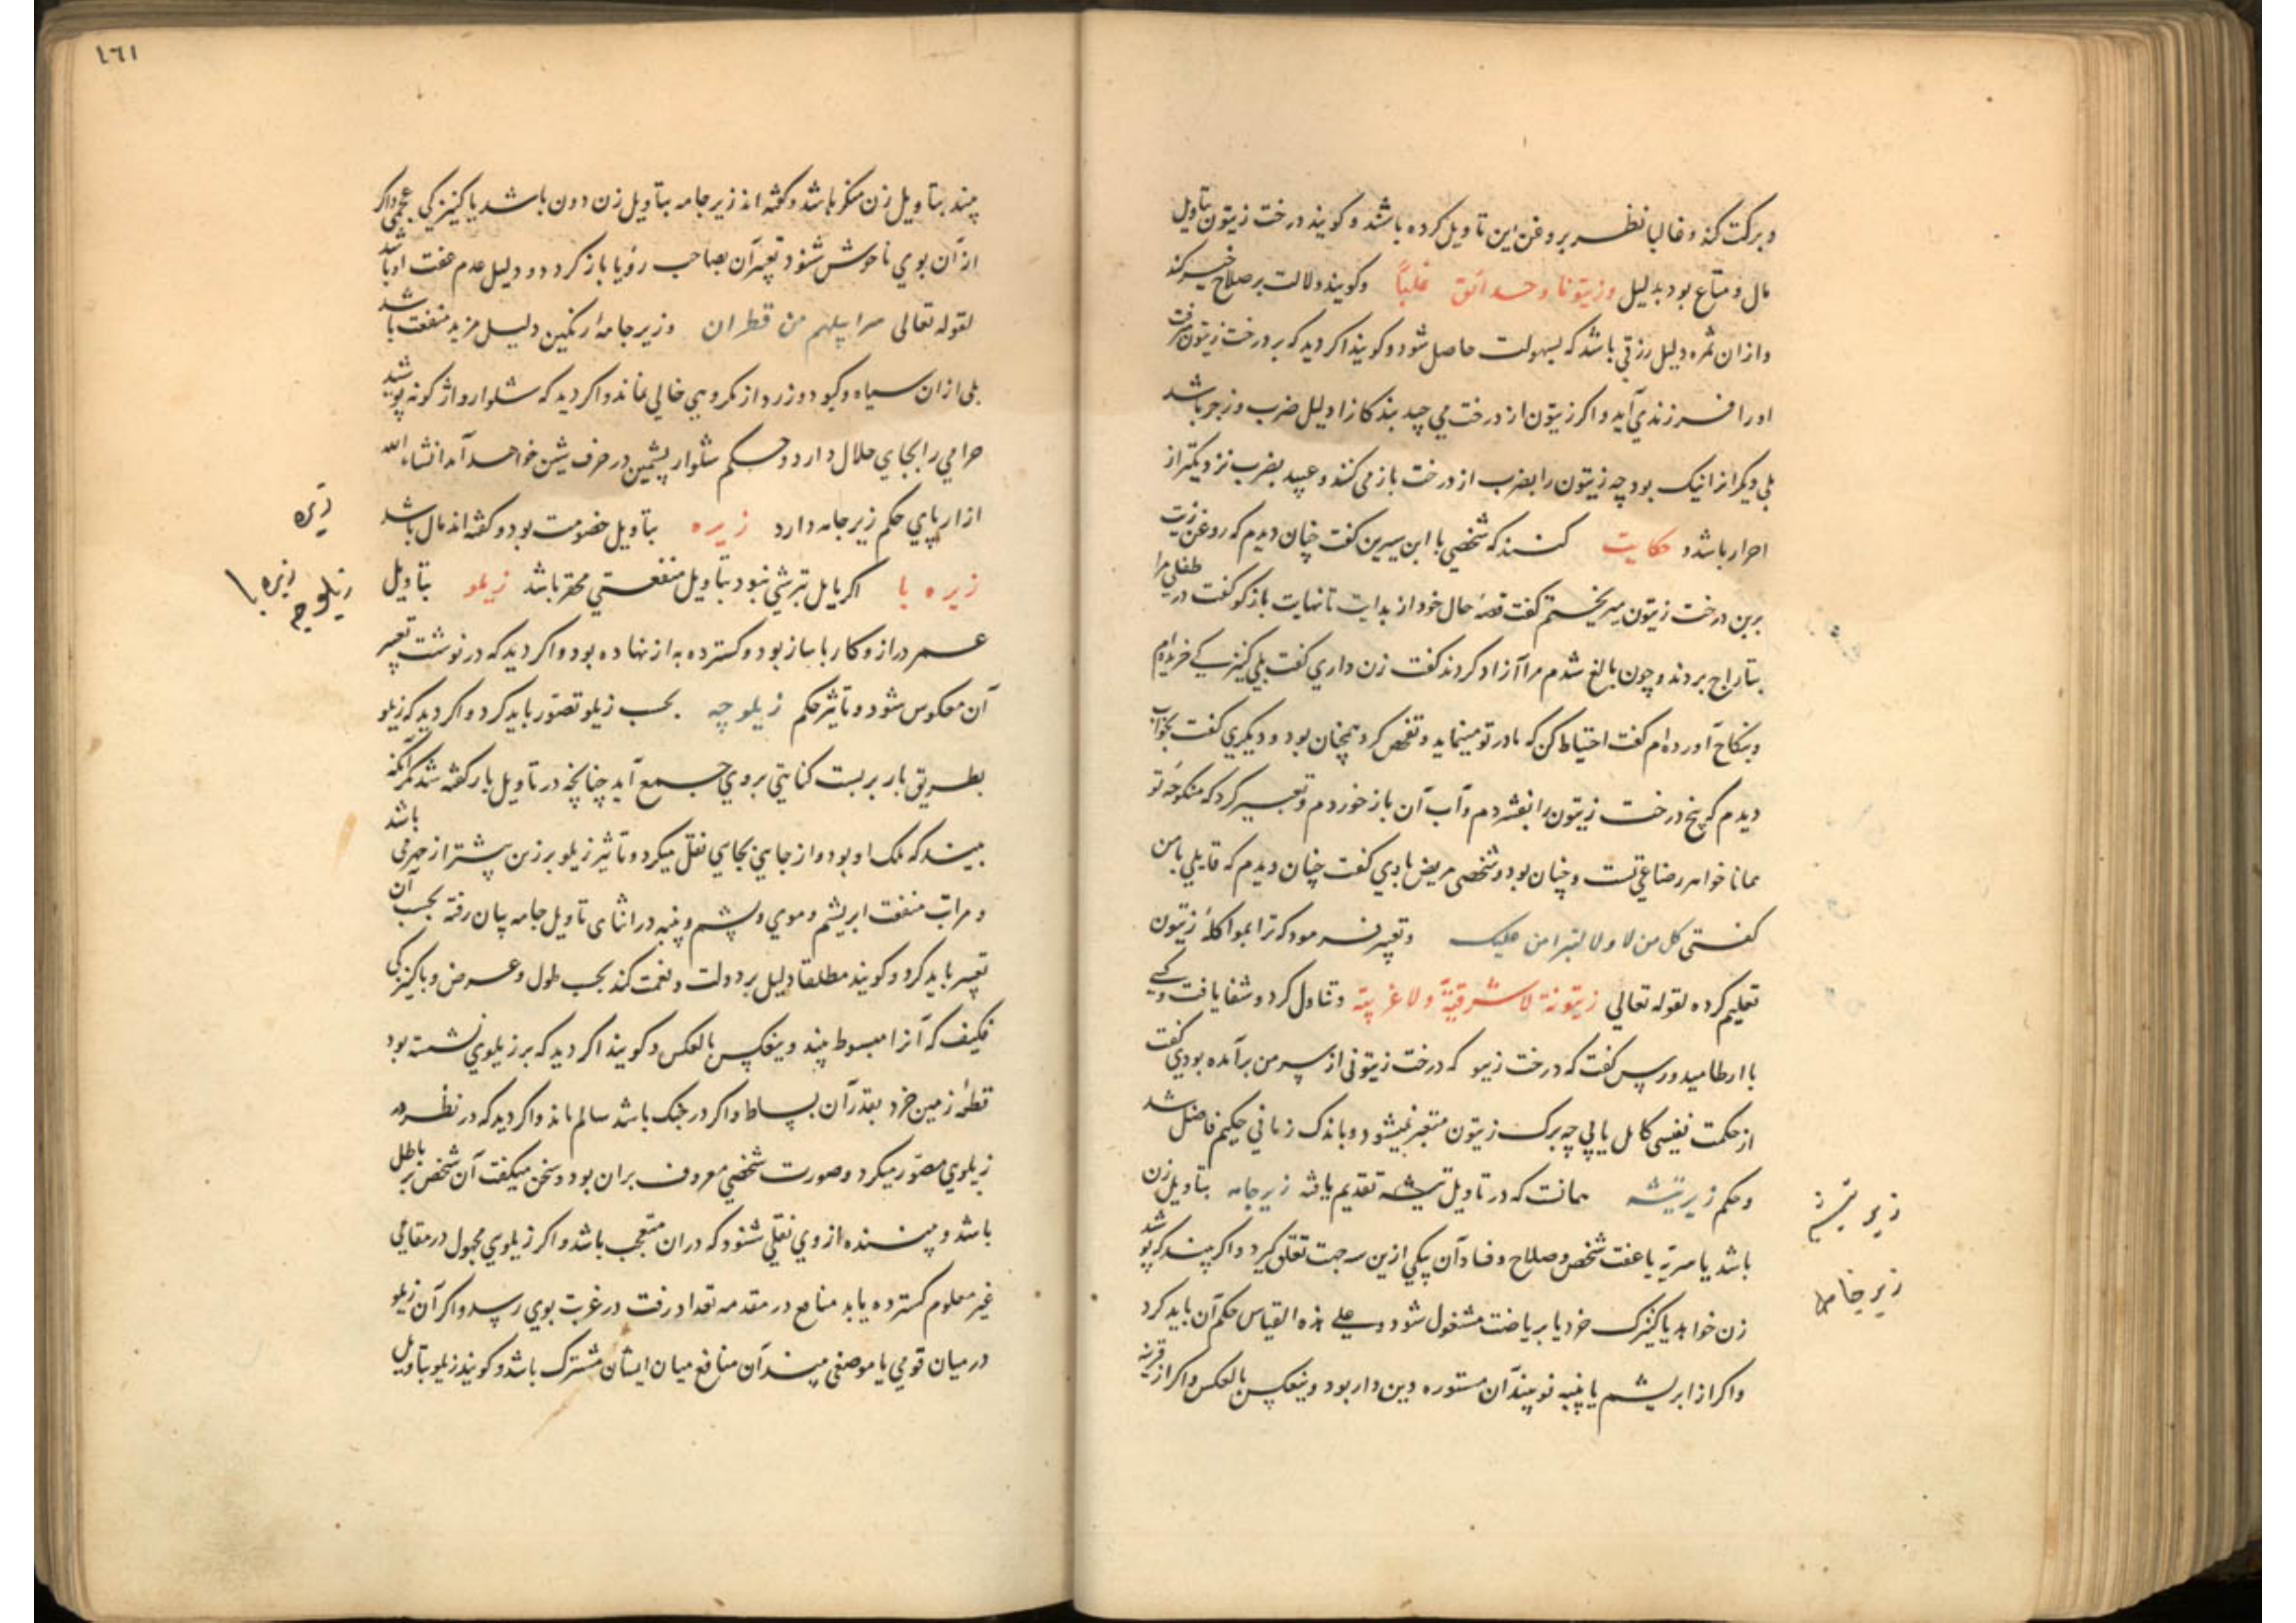 وبرکت کند و غالبا نظر بروغن این تاویل کرده باشند و کویند درخت زیتون بتاویل
مال و متاع بود بدلیل وزیتونا وحدائق غلباً وکویند دلالت بر صلاح خیر کند
وازان ثمره دلیل رزقی باشد که بسهولت حاصل شود و کویند اکر دید که بر درخت زیتون رفت
اورا فرزندی آید و اکر زیتون از درخت می چید بندکانرا دلیل ضرب و زجر باشد
بلی دیکرانرا نیک بود چه زیتون را بضرب از درخت باز می کنند و عبید بضرب نزدیکتر از
احرار باشد و حکایت کنند که شخصی با ابن سیرین کفت چنان دیدم که روغن زیت
برین درخت زیتون میریختم کفت قصهٔ حال خود از بدایت تا نهایت بازکو کفت در طفلی مرا
بتاراج بردند و چون بالغ شدم مرا آزاد کردند کفت زن داری کفت بلی کنیزکی خریده‌ام
وبنکاح آورده‌ام کفت احتیاط کن که مادر تو مینماید و تفحص کرد همچنان بود و دیکری کفت بخواب
دیدم که بیخ درخت زیتون را بفشردم و آب آن باز خوردم و تعبیر کرد که منکوحه تو
همانا خواهر رضاعی تست و چنان بود و شخصی مریض با وی کفت چنان دیدم که قایلی با من
کفتی کل من لا ولا لتبرا من علیک و تعبیر فرمود که ترا بمواکلهٔ زیتون
تعلیم کرده لقوله تعالی زیتونة لا شرقیة ولا غربیة و تناول کرد و شفا یافت و کسی
با ارطامیدورس کفت که درخت زیتو که درخت زیتونی از سر من برآمده بود وی کفت
از حکمت نفیسی کامل یابی چه برک زیتون متغیر نمیشود و باندک زمانی حکیم فاضل شد
وحکم زیر تیشه همانست که در تاویل تیشه تقدیم یافته زیرجامه بتاویل زن
باشد یا سریّه یا عفت شخص و صلاح و فساد آن بیکی ازین سه جهت تعلق کیرد و اکر بیند که پوشید
زن خواهد یا کنیزک خرد یا بریاضت مشغول شود و علی هذه القیاس حکم آن باید کرد
واکر از ابریشم یا پنبه نو بیند آن مستوره دین دار بود وینعکس بالعکس و اکر از قرینه
زیر تیشه
زیر جامه
١٦١
بیند بتاویل زن منکر باشد و کفته‌اند زیر جامه بتاویل زن دون باشد یا کنیزکی عجمی و اکر
از آن بوی ناخوش شنود تعبیر آن بصاحب رؤیا باز کردد و دلیل عدم عفت او باشد
لقوله تعالی سرابیلهم من قطران وزیر جامهٔ رنکین دلیل مزید منفعت باشد
بلی ازان سیاه و کبود و زرد از مکروهی خالی نماند و اکر دید که شلوار واژکونه پوشید
حرامی را بجای حلال دارد و حکم شلوار پشمین در حرف شین خواهد آمد انشاءالله
ازار پای حکم زیر جامه دارد زیره بتاویل خصومت بود و کفته‌اند مال باشد
زیره با اکر مایل بترشی نبود بتاویل منفعتی محقر باشد زیلو بتاویل
عمر دراز و کار با ساز بود و کسترده به از نهاده بود و اکر دید که در نوشت تعبیر
آن معکوس شود و تاثیر حکم زیلوچه بحسب زیلو تصوّر باید کرد و اکر دید که زیلو
بطریق بار بربست کنایتی بروی جمع آید چنانچه در تاویل بار کفته شد مکر آنکه
بیند که ملک او بود و از جایی بجایی نقل میکرد و تاثیر زیلو بر زن بیشتر از جهرمی باشد
و مراتب منفعت ابریشم و موی و پشم و پنبه در اثنای تاویل جامه بیان رفته بحسب آن
تعبیر باید کرد و کویند مطلقا دلیل بر دولت و نعمت کند بحسب طول و عرض و پاکیزکی
فکیف که آنرا مبسوط بیند وینعکس بالعکس و کویند اکر دید که بر زیلوی نشسته بود
قطعهٔ زمین خرد بقدر آن بساط و اکر در جنک باشد سالم ماند و اکر دید که در نظر او
زیلوی مصوّر میکرد و صورت شخصی معروف بران بود و سخن میکفت آن شخص بر باطل
باشد و بیننده از وی نقلی شنود که دران متعجب باشد و اکر زیلوی مجهول در مقامی
غیر معلوم کسترده یابد منافع در مقدمه تعداد رفت در غربت بوی رسد و اکر آن زیلو
در میان قومی یا موضعی بیند آن منافع میان ایشان مشترک باشد و کویند زیلو بتاویل
زیره
زیره با
زیلوچه